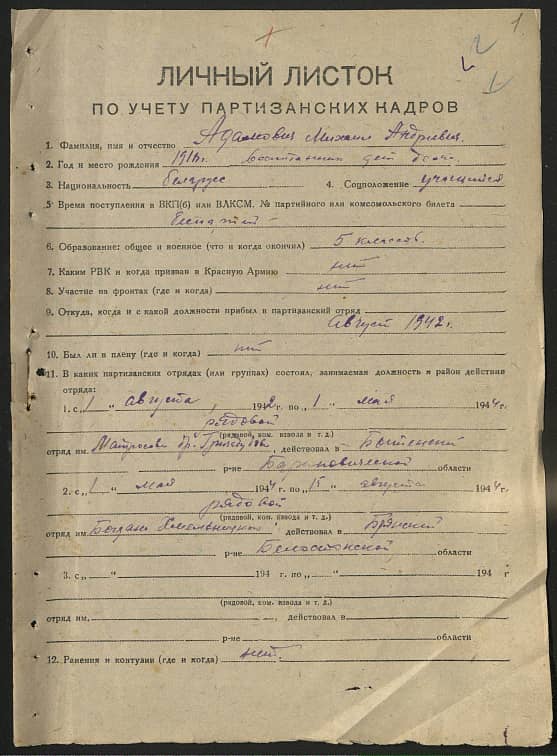 1
2
ЛИЧНЫЙ ЛИСТОК
ПО УЧЕТУ ПАРТИЗАНСКИХ КАДРОВ
1. Фамилия, имя и отчество Адамович Михаил Андреевич.
2. Год и место рождения 1916г. воспитанник дет
3. Национальность белорус 4. Соцположение учащийся
5. Время поступления в ВКП(б) или ВЛКСМ, № партийного или комсомольского билета
6. Образование: общее и военное (что и когда окончил) 5 классов.
7. Каким РВК и когда призван в Красную Армию нет
8. Участие на фронтах (где и когда) нет
9. Откуда, когда и с какой должности прибыл в партизанский отряд
август 1942г.
10. Был ли в плену (где и когда) нет
11. В каких партизанских отрядах (или группах) состоял, занимаемая должность и район действия
отряда:
1. с „1 “ августа 1942г. по „1 “ мая 1944г.
рядовой
(рядовой, ком. взвода и т. д.)
отряд им. Матросова бр. , действовал в Бытенский
р-не Барановической области
2. с „1 “ мая 1944г. по „15 “ августа 1944г.
рядовой
(рядовой, ком. взвода и т. д.)
отряд им. Богдана Хмельницкого, действовал в
р-не Белостокской области
3. с „ “ 194 г. по „ “ 194 г
(рядовой, ком. взвода и т. д.)
отряд им. , действовал в
р-не области
12. Ранения и контузии (где и когда) нет.